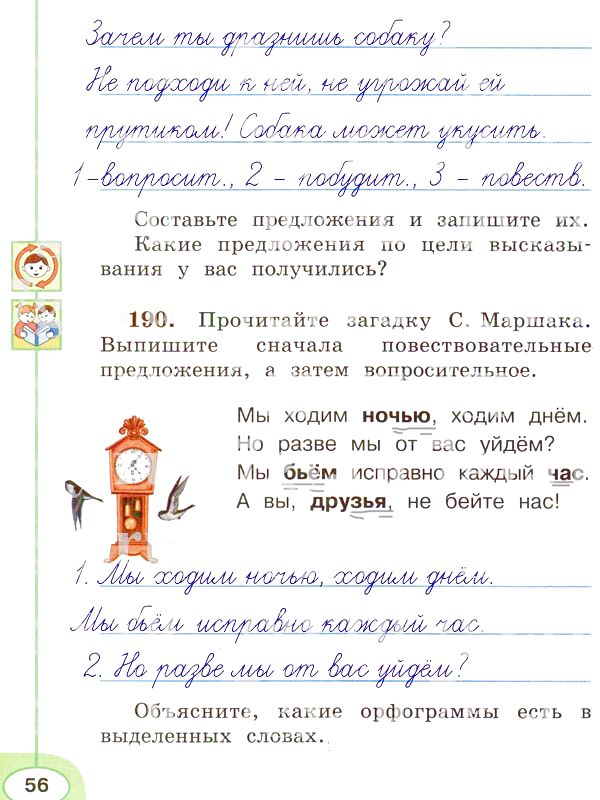 Зачем ты дразнишь собаку?
Не подходи к ней, не угрожай ей
прутиком! Собака может укусить.
1 – вопросит., 2 – побудит., 3 – повеств.
Составьте предложения и запишите их.
Какие предложения по цели высказы-
вания у вас получились?
190. Прочитайте загадку С. Маршака.
Выпишите сначала повествовательные
предложения, а затем вопросительное.
Мы ходим ночью, ходим днём.
Но разве мы от вас уйдём?
Мы бьём исправно каждый час.
А вы, друзья, не бейте нас!
1. Мы ходим ночью, ходим днём.
Мы бьём исправно каждый час.
2. Но разве мы от вас уйдём?
Объясните, какие орфограммы есть в
выделенных словах.
56